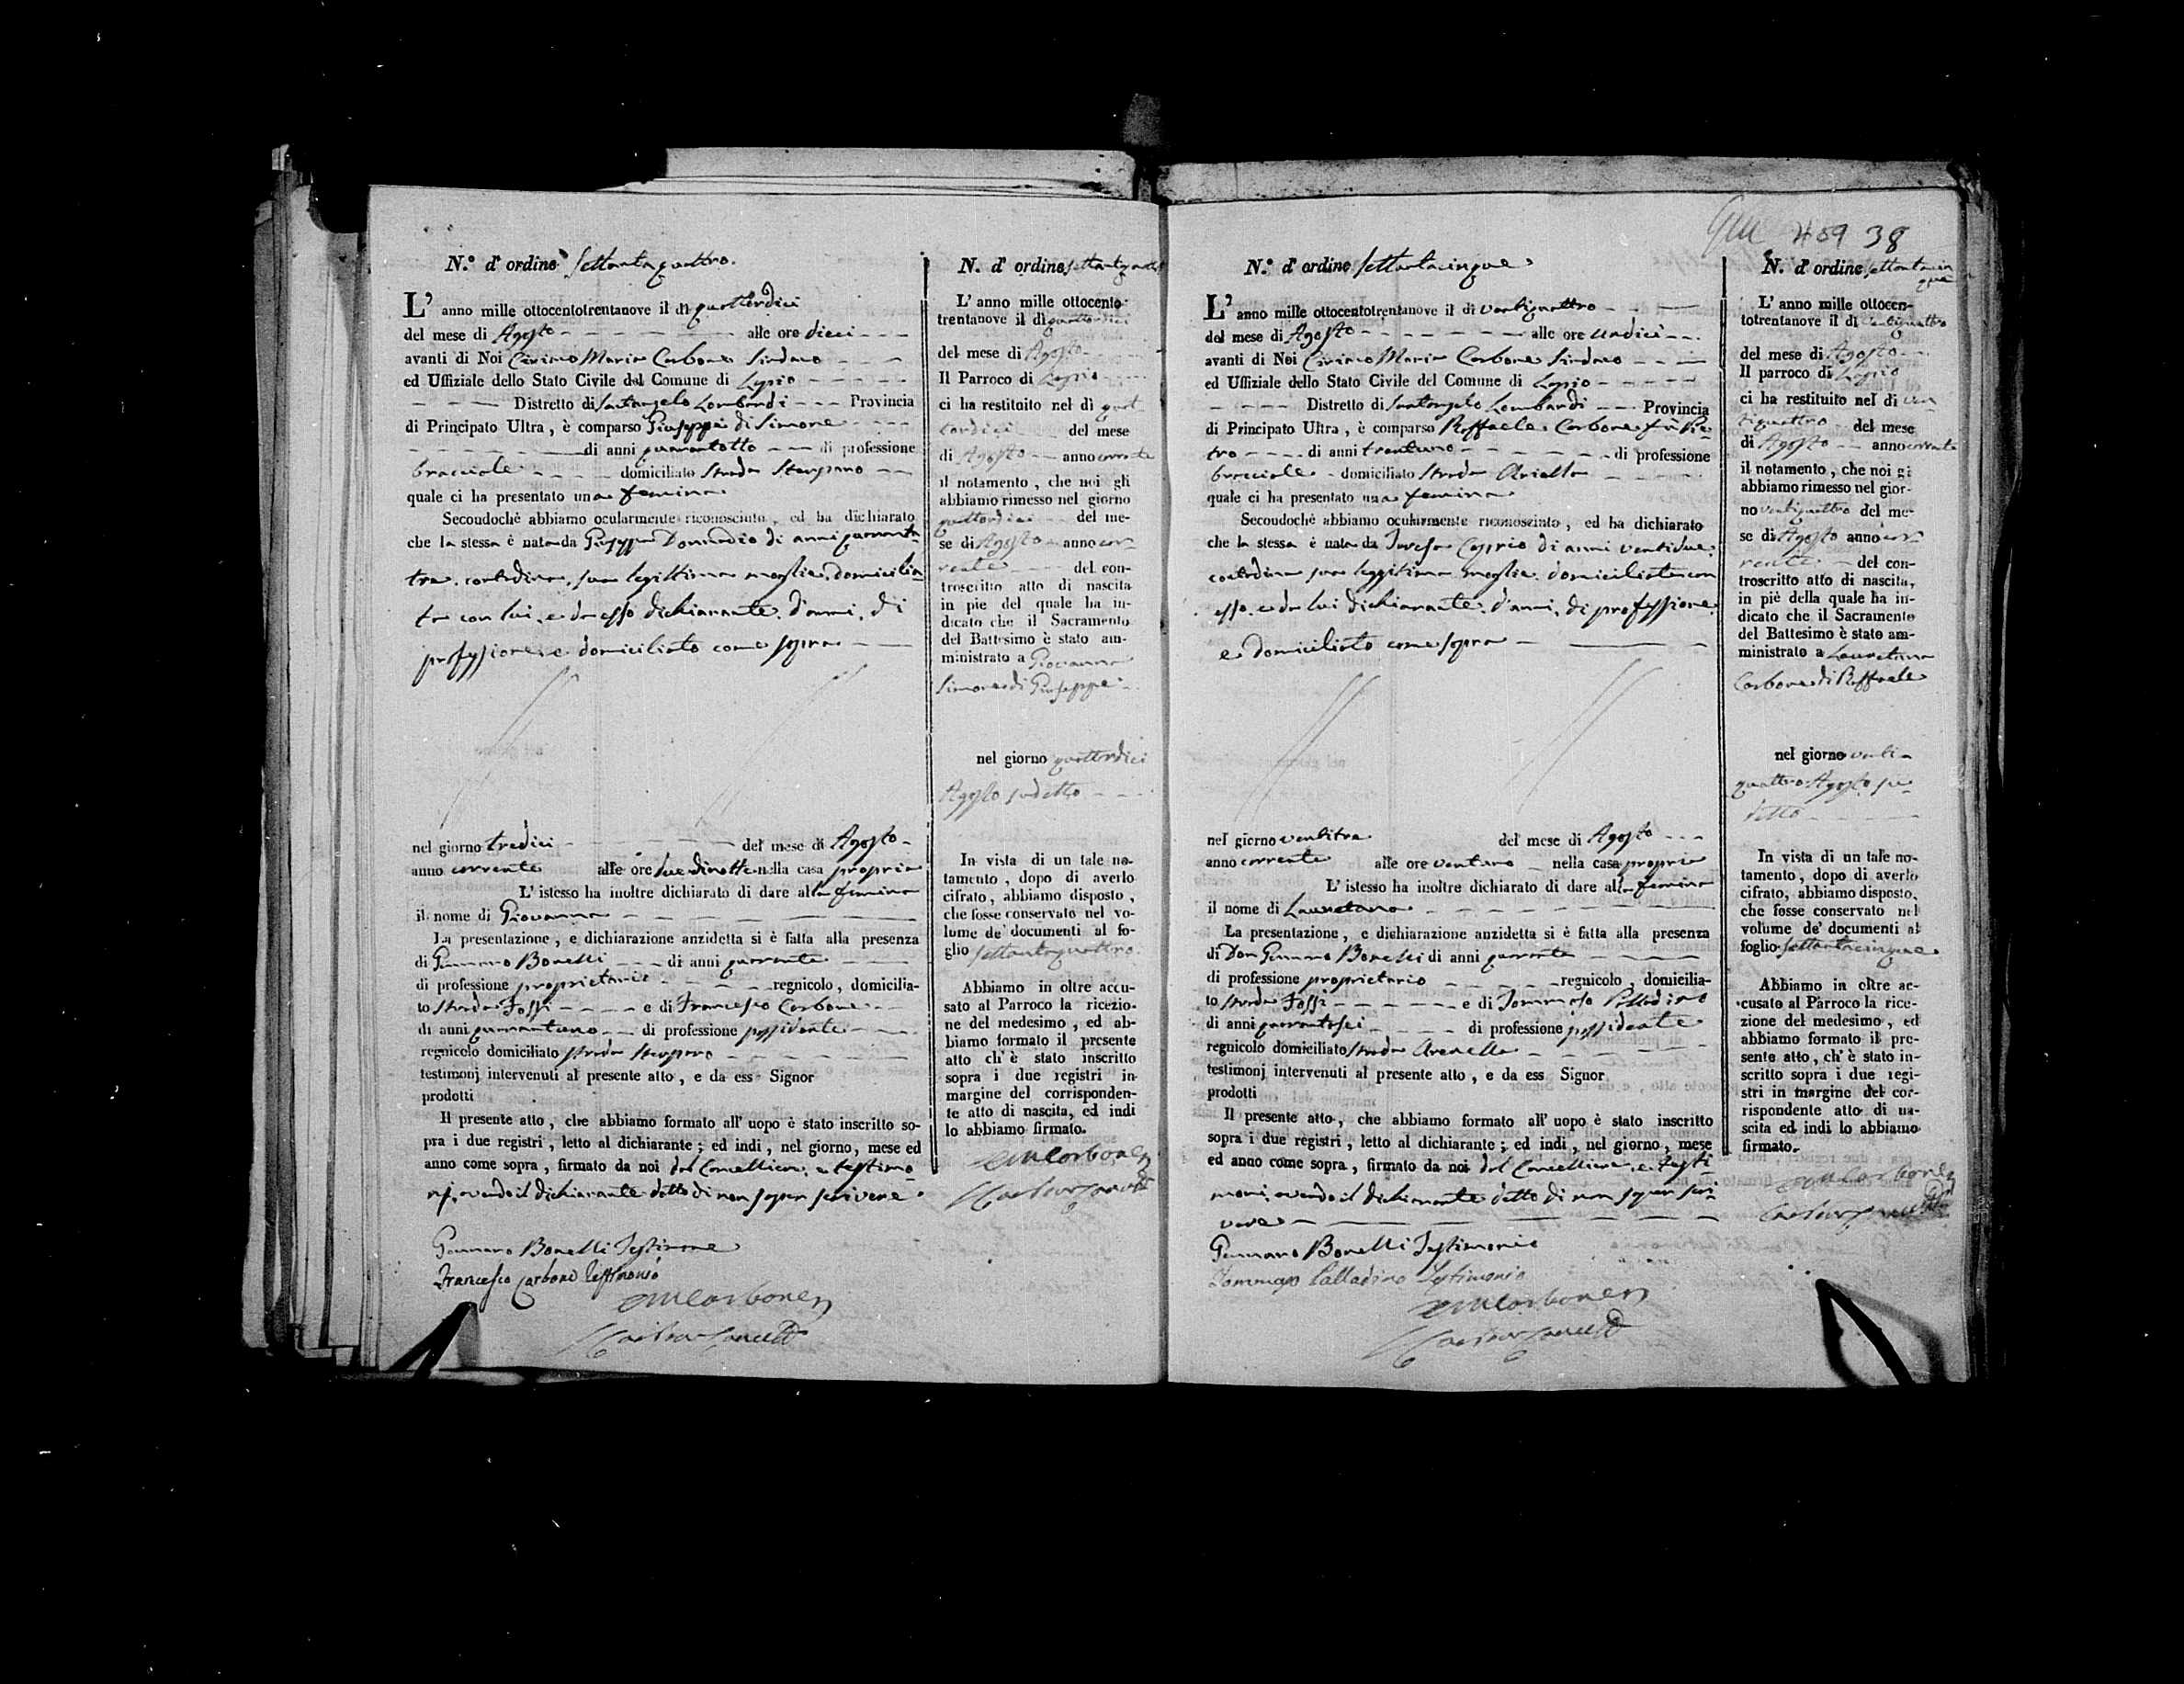 N.° d' ordine Settantaquattro.
L' anno mille ottocentotrentanove il dì quattordici
del mese di Agosto alle ore dieci
avanti di Noi Maria Carbone Sindaco
ed Uffiziale dello Stato Civile del Comune di Lapio
Distretto di Santangelo Lombardi Provincia
di Principato Ultra, è comparso Giuseppe di Simone
di anni quarantotto di professione
bracciale domiciliato Strada
quale ci ha presentato una femina
Secondochè abbiamo ocularmente riconosciuto, ed ha dichiarato
che la stessa è nata da Giuseppa Donnadio di anni quaranta
tre contadina, sua legittima moglie, domicilia
ta con lui, e da esso dichiarante d'anni, di
professione, e domiciliato come sopra
nel giorno tredici del mese di Agosto
anno corrente alle ore nella casa propria
L' istesso ha inoltre dichiarato di dare alla femina
il nome di Giovanna
La presentazione, e dichiarazione anzidetta si è fatta alla presenza
di Gennaro Bonelli di anni quaranta
di professione proprietario regnicolo, domicilia-
to strada Fossi e di Francesco Carbone
di anni quarantuno di professione possidente
regnicolo domiciliato strada
testimonj intervenuti al presente atto, e da ess Signor
prodotti
Il presente atto, che abbiamo formato all' uopo è stato inscritto so-
pra i due registri, letto al dichiarante; ed indi, nel giorno, mese ed
anno come sopra, firmato da noi dal Cancelliere, e testimo
nj, avendo il dichiarante detto di non saper scrivere.
Gennaro Bonelli Testimone
Francesco Carbone Testimonio
CM Carbone
N. d' ordine settantaquattro
L' anno mille ottocento-
trentanove il dì quattordici
del mese di Agosto
Il Parroco di Lapio
ci ha restituito nel dì quat
tordici del mese
di Agosto anno corrente
il notamento, che noi gli
abbiamo rimesso nel giorno
quattordici del me-
se di Agosto anno cor-
rente del con-
troscritto atto di nascita
in piè del quale ha in-
dicato che il Sacramento
del Battesimo è stato am-
ministrato a Giovanna
Simone di Giuseppe
nel giorno quattordici
Agosto sudetto
In vista di un tale no-
tamento, dopo di averlo
cifrato, abbiamo disposto,
che fosse conservato nel vo-
lume de' documenti al fo-
glio settantaquattro.
Abbiamo in oltre accu-
sato al Parroco la ricezio-
ne del medesimo, ed ab-
biamo formato il presente
atto ch' è stato inscritto
sopra i due registri in
margine del corrisponden-
te atto di nascita, ed indi
lo abbiamo firmato.
CM Carbone
409 38
N.° d' ordine settantacinque
L' anno mille ottocentotrentanove il dì ventiquattro
del mese di Agosto alle ore undici
avanti di Noi Maria Carbone Sindaco
ed Uffiziale dello Stato Civile del Comune di Lapio
Distretto di Santangelo Lombardi Provincia
di Principato Ultra, è comparso Raffaele Carbone fu Pie-
tro di anni trentuno di professione
bracciale domiciliato strada
quale ci ha presentato una femina
Secondochè abbiamo ocularmente riconosciuto, ed ha dichiarato
che la stessa è nata da Teresa Caprio di anni ventidue
contadina sua leggitima moglie domiciliata con
esso, e da lui dichiarante d'anni, di professione
e domiciliato come sopra
nel giorno ventitre del mese di Agosto
anno corrente alle ore ventuno nella casa propria
L' istesso ha inoltre dichiarato di dare alla femina
il nome di Lauretana
La presentazione, e dichiarazione anzidetta si è fatta alla presenza
di Don Gennaro Bonelli di anni quaranta
di professione proprietario regnicolo domicilia-
to strada Fossi e di Tommaso Palladino
di anni quarantasei di professione possidente
regnicolo domiciliato strada Arenella
testimonj intervenuti al presente atto, e da ess Signor
prodotti
Il presente atto, che abbiamo formato all' uopo è stato inscritto
sopra i due registri, letto al dichiarante; ed indi, nel giorno, mese
ed anno come sopra, firmato da noi dal Cancelliere, e testi-
moni, avendo il dichiarante detto di non saper scri-
vere
Gennaro Bonelli Testimonio
Tommaso Palladino Testimonio
CM Carbone
N. d' ordine settantacin
que
L' anno mille ottocen-
totrentanove il dì ventiquattro
del mese di Agosto
Il parroco di Lapio
ci ha restituito nel dì ven
tiquattro del mese
di Agosto anno corrente
il notamento, che noi gi
abbiamo rimesso nel gior-
no ventiquattro del me-
se di Agosto anno cor-
rente del con-
troscritto atto di nascita,
in piè della quale ha in-
dicato che il Sacramento
del Battesimo è stato am-
ministrato a Lauretana
Carbone di Raffaele
nel giorno venti-
quattro Agosto su-
detto
In vista di un tale no-
tamento, dopo di averlo
cifrato, abbiamo disposto,
che fosse conservato nel
volume de' documenti al
foglio settantacinque
Abbiamo in oltre ac-
cusato al Parroco la rice-
zione del medesimo, ed
abbiamo formato il pre-
sente atto, ch' è stato in-
scritto sopra i due regi-
stri in margine del cor-
rispondente atto di na-
scita ed indi lo abbiamo
firmato.
CM Carbone